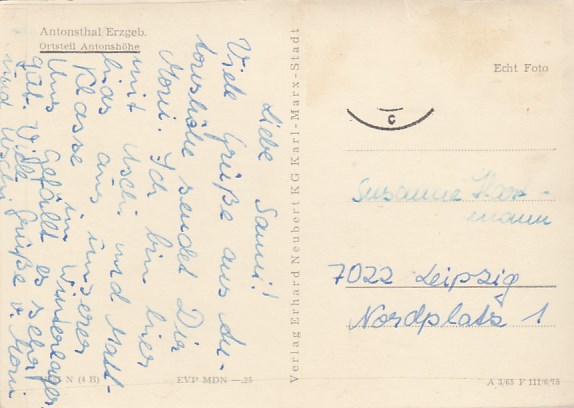 Antonsthal/Erzgeb.
Ortsteil Antonshöhe
Liebe Sanni!
Viele Grüße aus An-
tonshöhe sendet Dir
Moni. Ich bin hier
mit Uschi und Matt-
hias aus unserer
Klasse im Winterlager.
Uns gefällt es sehr
gut. Viele Grüße v. Moni
und Uschi
N (4 B)
EVP MDN —.25
Verlag Erhard Neubert KG Karl-Marx-Stadt
Echt Foto
c
Susanne
mann
7022 Leipzig
Nordplatz 1
A 3/65 F 111/6/75